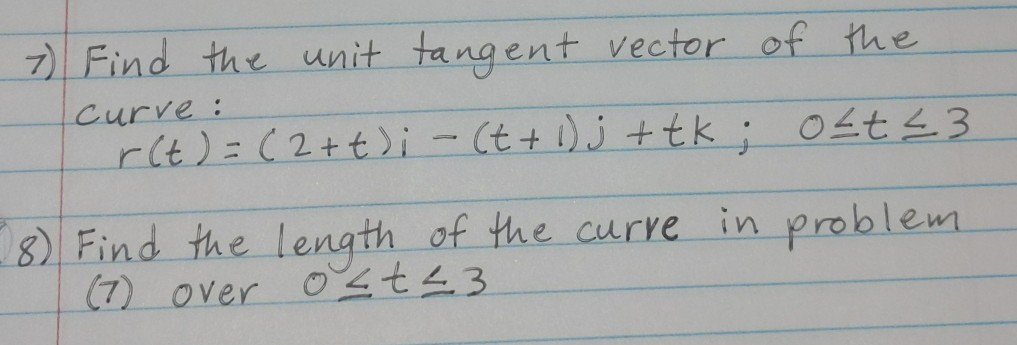 7) Find the unit tangent vector of the
curve :
r(t) = (2+t)i - (t+1)j + tk ; 0≤t≤3
8) Find the length of the curve in problem
(7) over 0≤t≤3